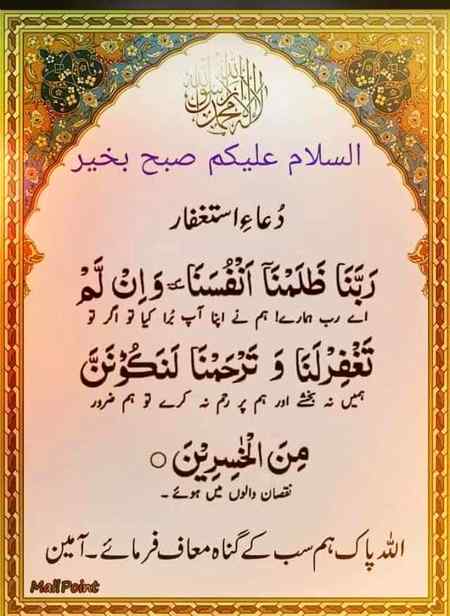 لا اله الا الله محمد رسول الله
السلام علیکم صبح بخیر
دُعاءِ استغفار
رَبَّنَا ظَلَمْنَآ اَنْفُسَنَا ٚ وَاِنْ لَّمْ
اے رب ہمارے! ہم نے اپنا آپ بُرا کیا تو اگر تو
تَغْفِرْلَنَا وَ تَرْحَمْنَا لَنَكُوْنَنَّ
ہمیں نہ بخشے اور ہم پر رحم نہ کرے تو ہم ضرور
مِنَ الْخٰسِرِیْنَ ○
نقصان والوں میں ہوئے ۔
اللہ پاک ہم سب کے گناہ معاف فرمائے۔ آمین
Mall Point